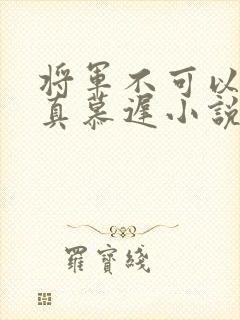 將軍不可以
真慕遲小說
羅寶綫